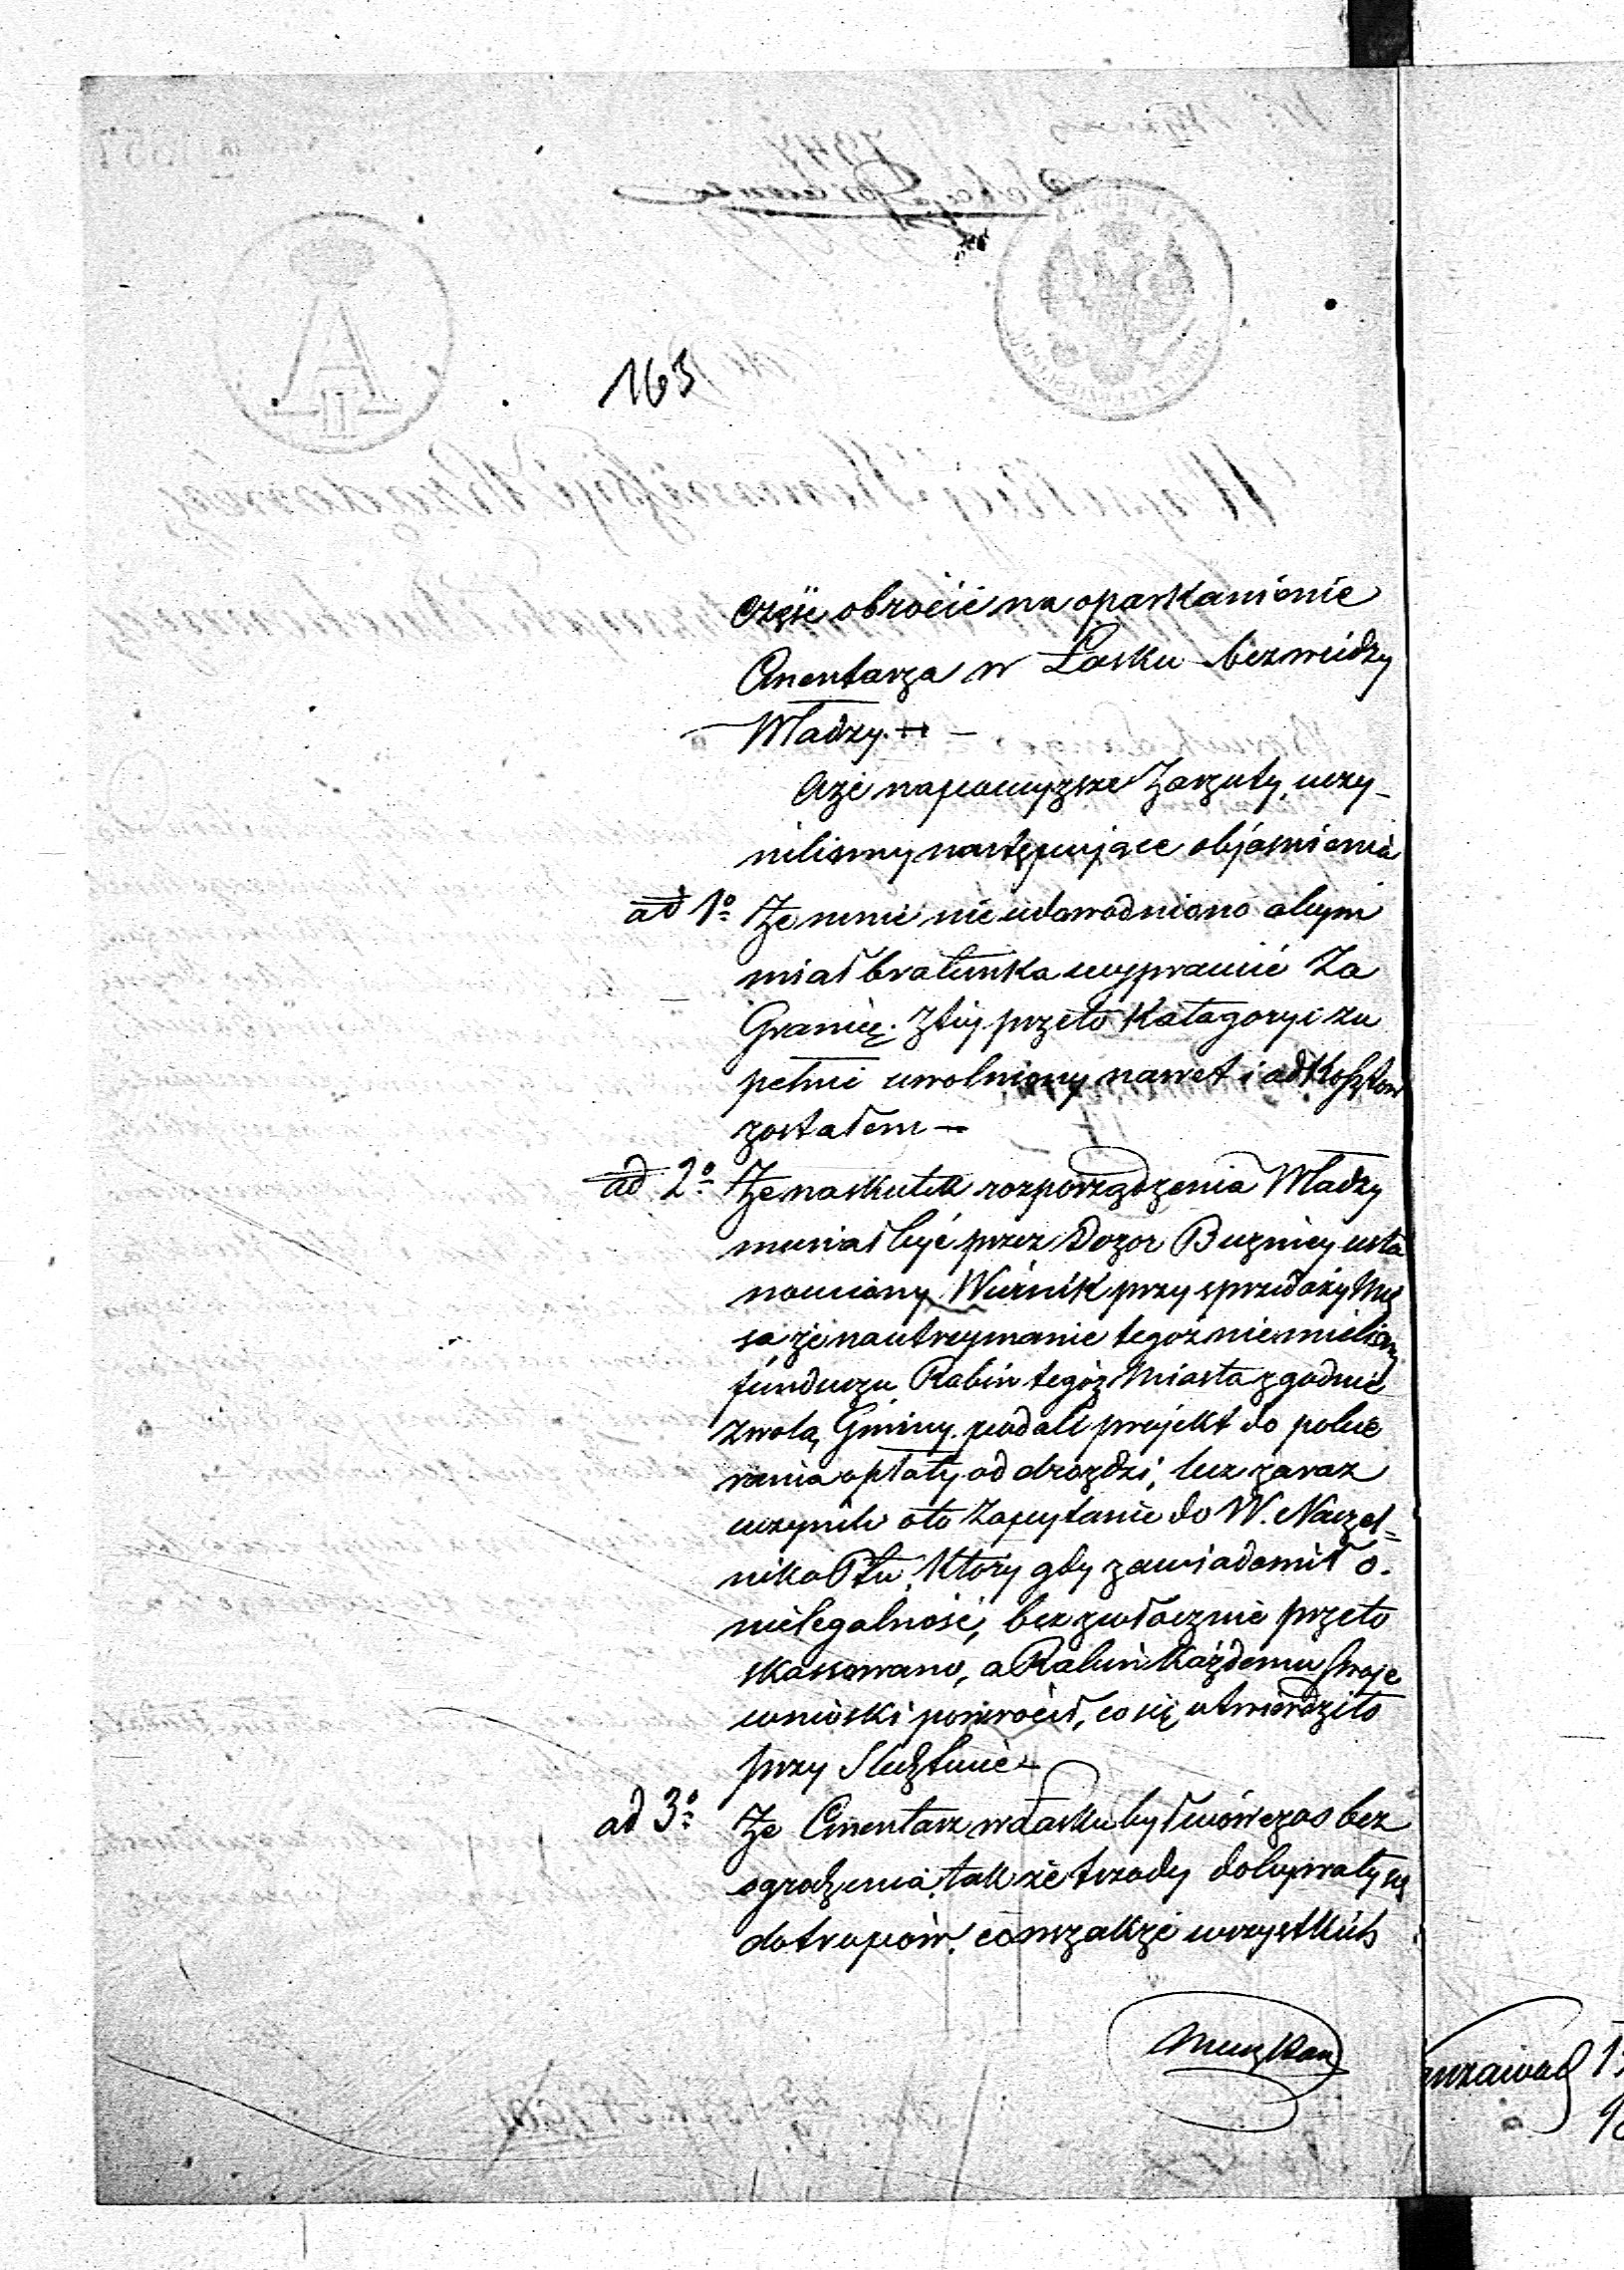 163
Część obrócić na oparkanienie
Cmentarza w Łasku bez wiedzy
Władzy. —
Aże na powyższe Zarzuty, uczy-
niliśmy następujące objaśnienia
ad 1º Że mnie nie udowodniono abym
miał bratunka wyprawić Za
Granicę. Ztey przeto Katagoryi zu
pełnie uwolniony nawet i od Kosztów
zostałem —
ad 2º Że na skutek rozporządzenia Władzy
musiał być przez Dozor Buzniczy usta
nowiony Wiernik przy sprzedaży Mię
sa, że na utrzymanie tegoż nie mieliśmy
funduszu Rabin tegoż Miasta zgodnie
z wolą Gminy podali projekt do pobie
rania opłaty od drożdzi, lecz zaraz
uczynili oto Zapytanie do W. Naczel=
nika Ptu. Który gdy zawiadomił o
nielegalność, bezzwłocznie przeto
skassowano, a Rabin Każdemu swoje
wnioski powrócił, co się utwierdziło
przy Sledztwie —
ad 3º Że Cmentarz w Łasku był wówczas bez
ogrodzenia, tak że trzody dobywały się
do trupów, co wszakże wszystkich